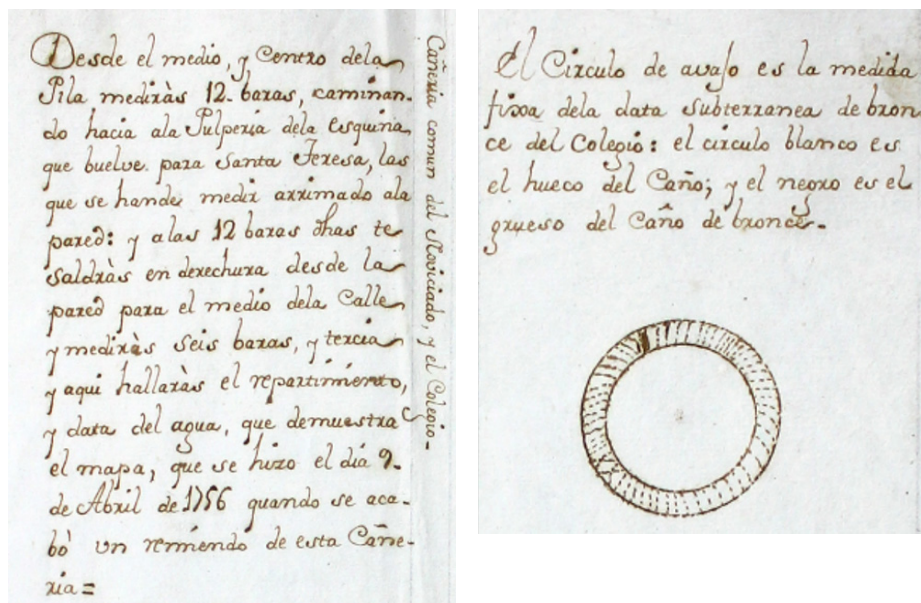 Desde el medio, y Centro dela
Pila mediràs 12. baras, caminan-
do hacia ala Pulperia dela esquina
que buelve para Santa Teresa, las
que se hande medir arrimado ala
pared: y alas 12 baras dhas te
saldràs en derechura desde la
pared para el medio dela Calle
y mediràs seis baras, y tercia
y aqui hallaràs el repartimiento,
y data del agua, que demuestra
el mapa, que se hizo el dia 9.
de Abril de 1756 quando se aca-
bò un remiendo de esta Cañe-
ria=
Cañeria comun del Noviciado, y el Colegio-
El Circulo de avajo es la medida
fixa dela data subterranea de bron
ce del Colegio: el circulo blanco es
el hueco del Caño; y el negro es el
grueso del Caño de bronce.